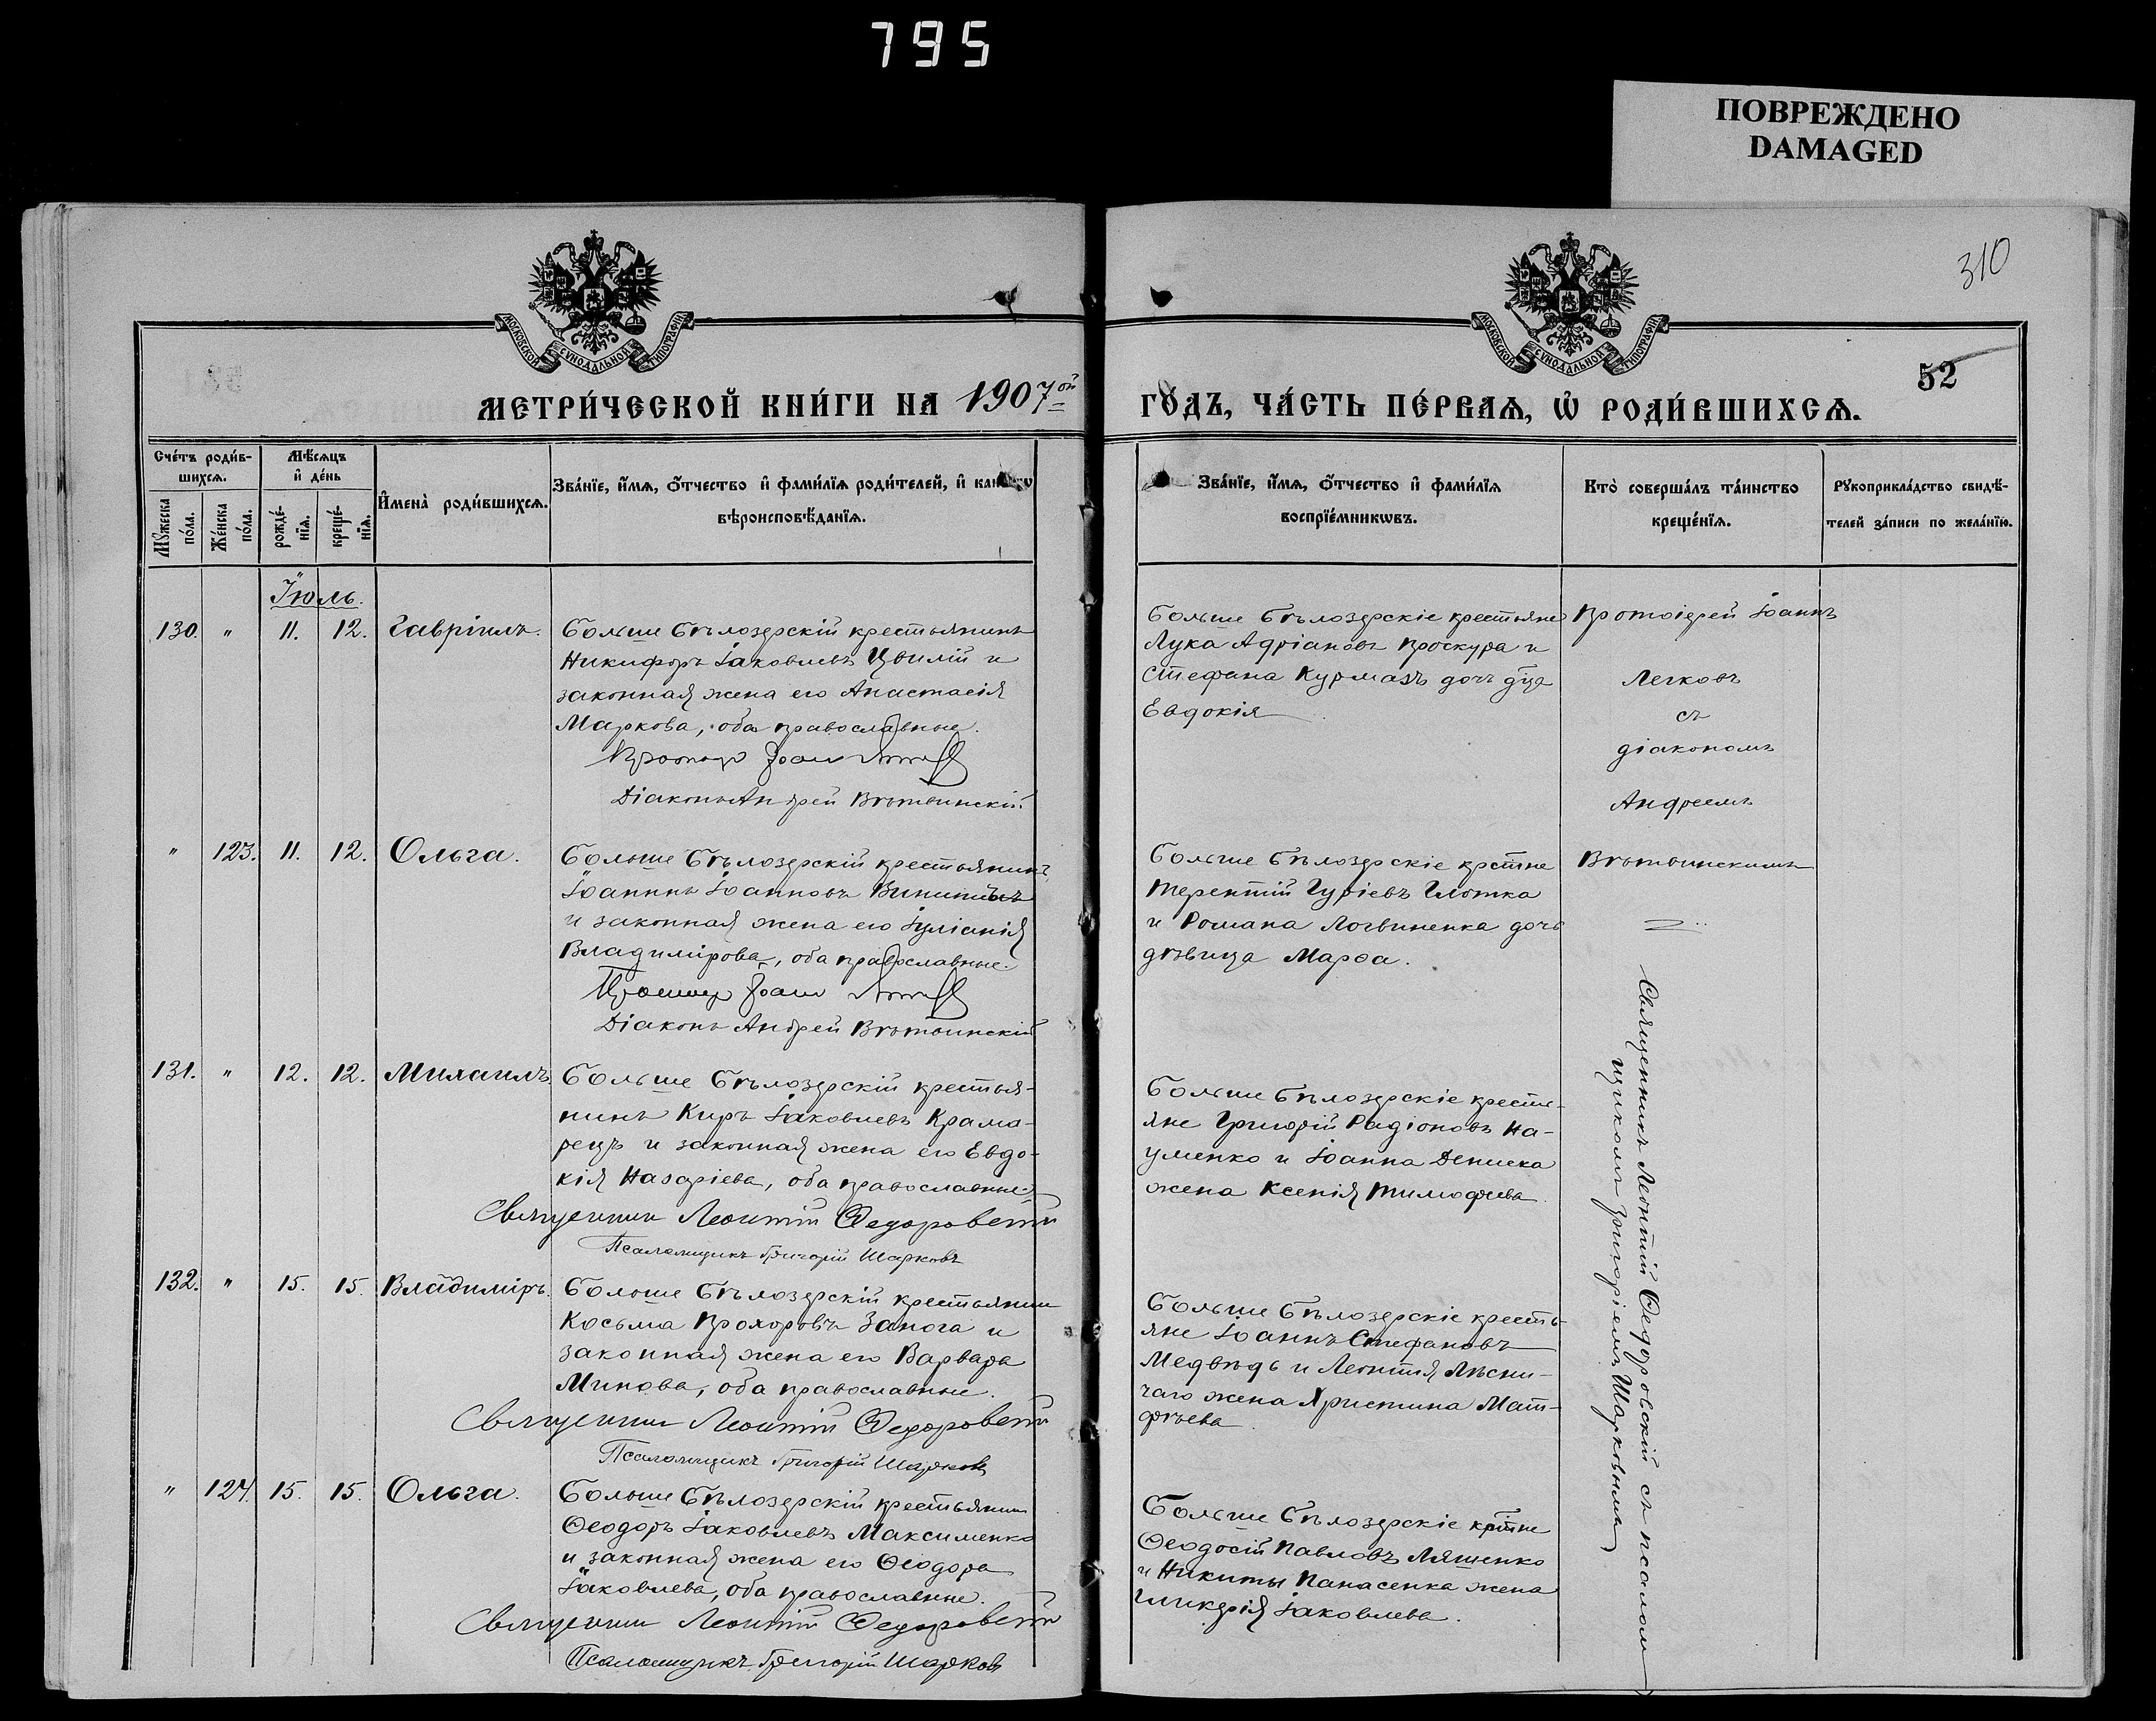 795
ПОВРЕЖДЕНО
DAMAGED
310
МОСКОВСКОЙ СУНОДАЛЬНОЙ ТИПОГРАФІИ
МОСКОВСКОЙ СУНОДАЛЬНОЙ ТИПОГРАФІИ
52
МЕТРИ́ЧЕСКОЙ КНИ́ГИ НА 1907ой
ГО́ДЪ, ЧА́СТЬ ПЕ́РВАѦ, Ѡ҆ РОДИ́ВШИХСѦ.
Сче́тъ роди́в-
шихсѧ.
Мꙋ́жеска
по́ла.
Же́нска
по́ла.
Мѣ́сѧцъ
и҆ де́нь
рожде́-
нїѧ.
креще́-
нїѧ.
И҆мена̀ роди́вшихсѧ.
Зва́нїе, и҆́мѧ, ѻ҆́тчество и҆ фами́лїѧ роди́телей, и҆
вѣроисповѣ́данїѧ.
Зва́нїе, и҆́мѧ, ѻ҆́тчество и҆ фами́лїѧ
воспрїе́мникѡвъ.
Кто̀ соверша́лъ та́инство
креще́нїѧ.
Рꙋкоприкла́дство свидѣ́-
телей за́писи по жела́нїю.
Іюль.
130. " 11. 12. Гавріилъ.
Больше Бѣлозерскій крестьянинъ
Никифоръ Іаковлевъ Цвилій и
законная жена его Анастасія
Маркова, оба православные.
Діаконъ Андрей Вѣтвинскій
Больше Бѣлозерскіе крестьяне
Лука Адріановъ Проскура и
Стефана Курмазъ дочь дца
Евдокія
Протоіерей Іоаннъ
Легковъ
съ
діакономъ
Андреемъ
Вѣтвинскимъ
" 123. 11. 12. Ольга.
Больше Бѣлозерскій крестьянинъ
Іоаннъ Іоанновъ
и законная жена его Іуліанія
Владимірова, оба православные.
Діаконъ Андрей Вѣтвинскій
Больше Бѣлозерскіе крстне
Терентій Гуріевъ Глотка
и Романа Логвиненка дочь
дѣвица Марѳа.
131. " 12. 12. Михаилъ.
Больше Бѣлозерскій крестья-
нинъ Киръ Іаковлевъ Крама-
рецъ и законная жена его Евдо-
кія Назаріева, оба православные.
Священникъ Леонтій Ѳедоровскій
Псаломщикъ Григорій Шарковъ
Больше Бѣлозерскіе кресть-
яне Григорій Радіоновъ На-
уменко и Іоанна Дениска
жена Ксенія Тимофеева.
132. " 15. 15. Владиміръ.
Больше Бѣлозерскій крестьянин
Косьма Прохоровъ Занога и
законная жена его Варвара
Минова, оба православные.
Священникъ Леонтій Ѳедоровскій
Псаломщикъ Григорій Шарковъ
Больше Бѣлозерскіе кресть-
яне Іоаннъ Стефановъ
Медвѣдь и Леонтія Лѣсни-
чаго жена Христина Мат-
фѣева
" 124. 15. 15. Ольга.
Больше Бѣлозерскій крестьянин
Ѳеодоръ Іаковлевъ Максименко
и законная жена его Ѳеодора
Іаковлева, оба православные.
Священникъ Леонтій Ѳедоровскій
Псаломщикъ Григорій Шарковъ
Больше Бѣлозерскіе крстне
Ѳеодосій Павловъ Ляшенко
и Никиты Панасенка жена
Гликерія Іаковлева.
Священникъ Леонтій Ѳедоровскій съ псалом-
щикомъ Григоріемъ Шарковымъ